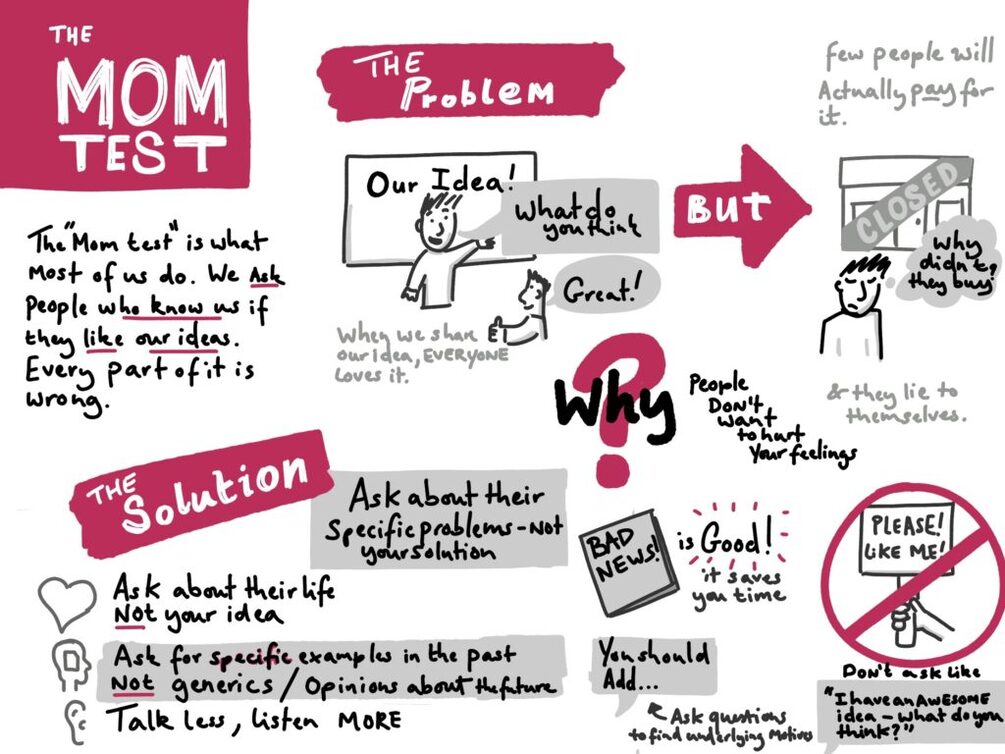 THE
MOM
TEST
The "Mom test" is what
most of us do. We Ask
People who know us if
they like our ideas.
Every part of it is
wrong.
THE
Problem
Our Idea!
What do
you think
Great!
When we share
our idea, EVERYONE
Loves it.
BUT
few people will
Actually pay for
it.
CLOSED
Why
didn't
they buy?
& they lie to
themselves.
Why
?
People
Don't
want
to hurt
Your feelings
THE
Solution
Ask about their
Specific problems - Not
your solution
Ask about their life
NOT your idea
Ask for specific examples in the past
NOT generics / Opinions about the future
Talk less, listen MORE
BAD
NEWS!
is Good!
it saves
you time
You should
Add...
Ask questions
to find underlying Motives
PLEASE!
LIKE ME!
Don't ask like
"I have an AWESOME
idea - what do you
think?"